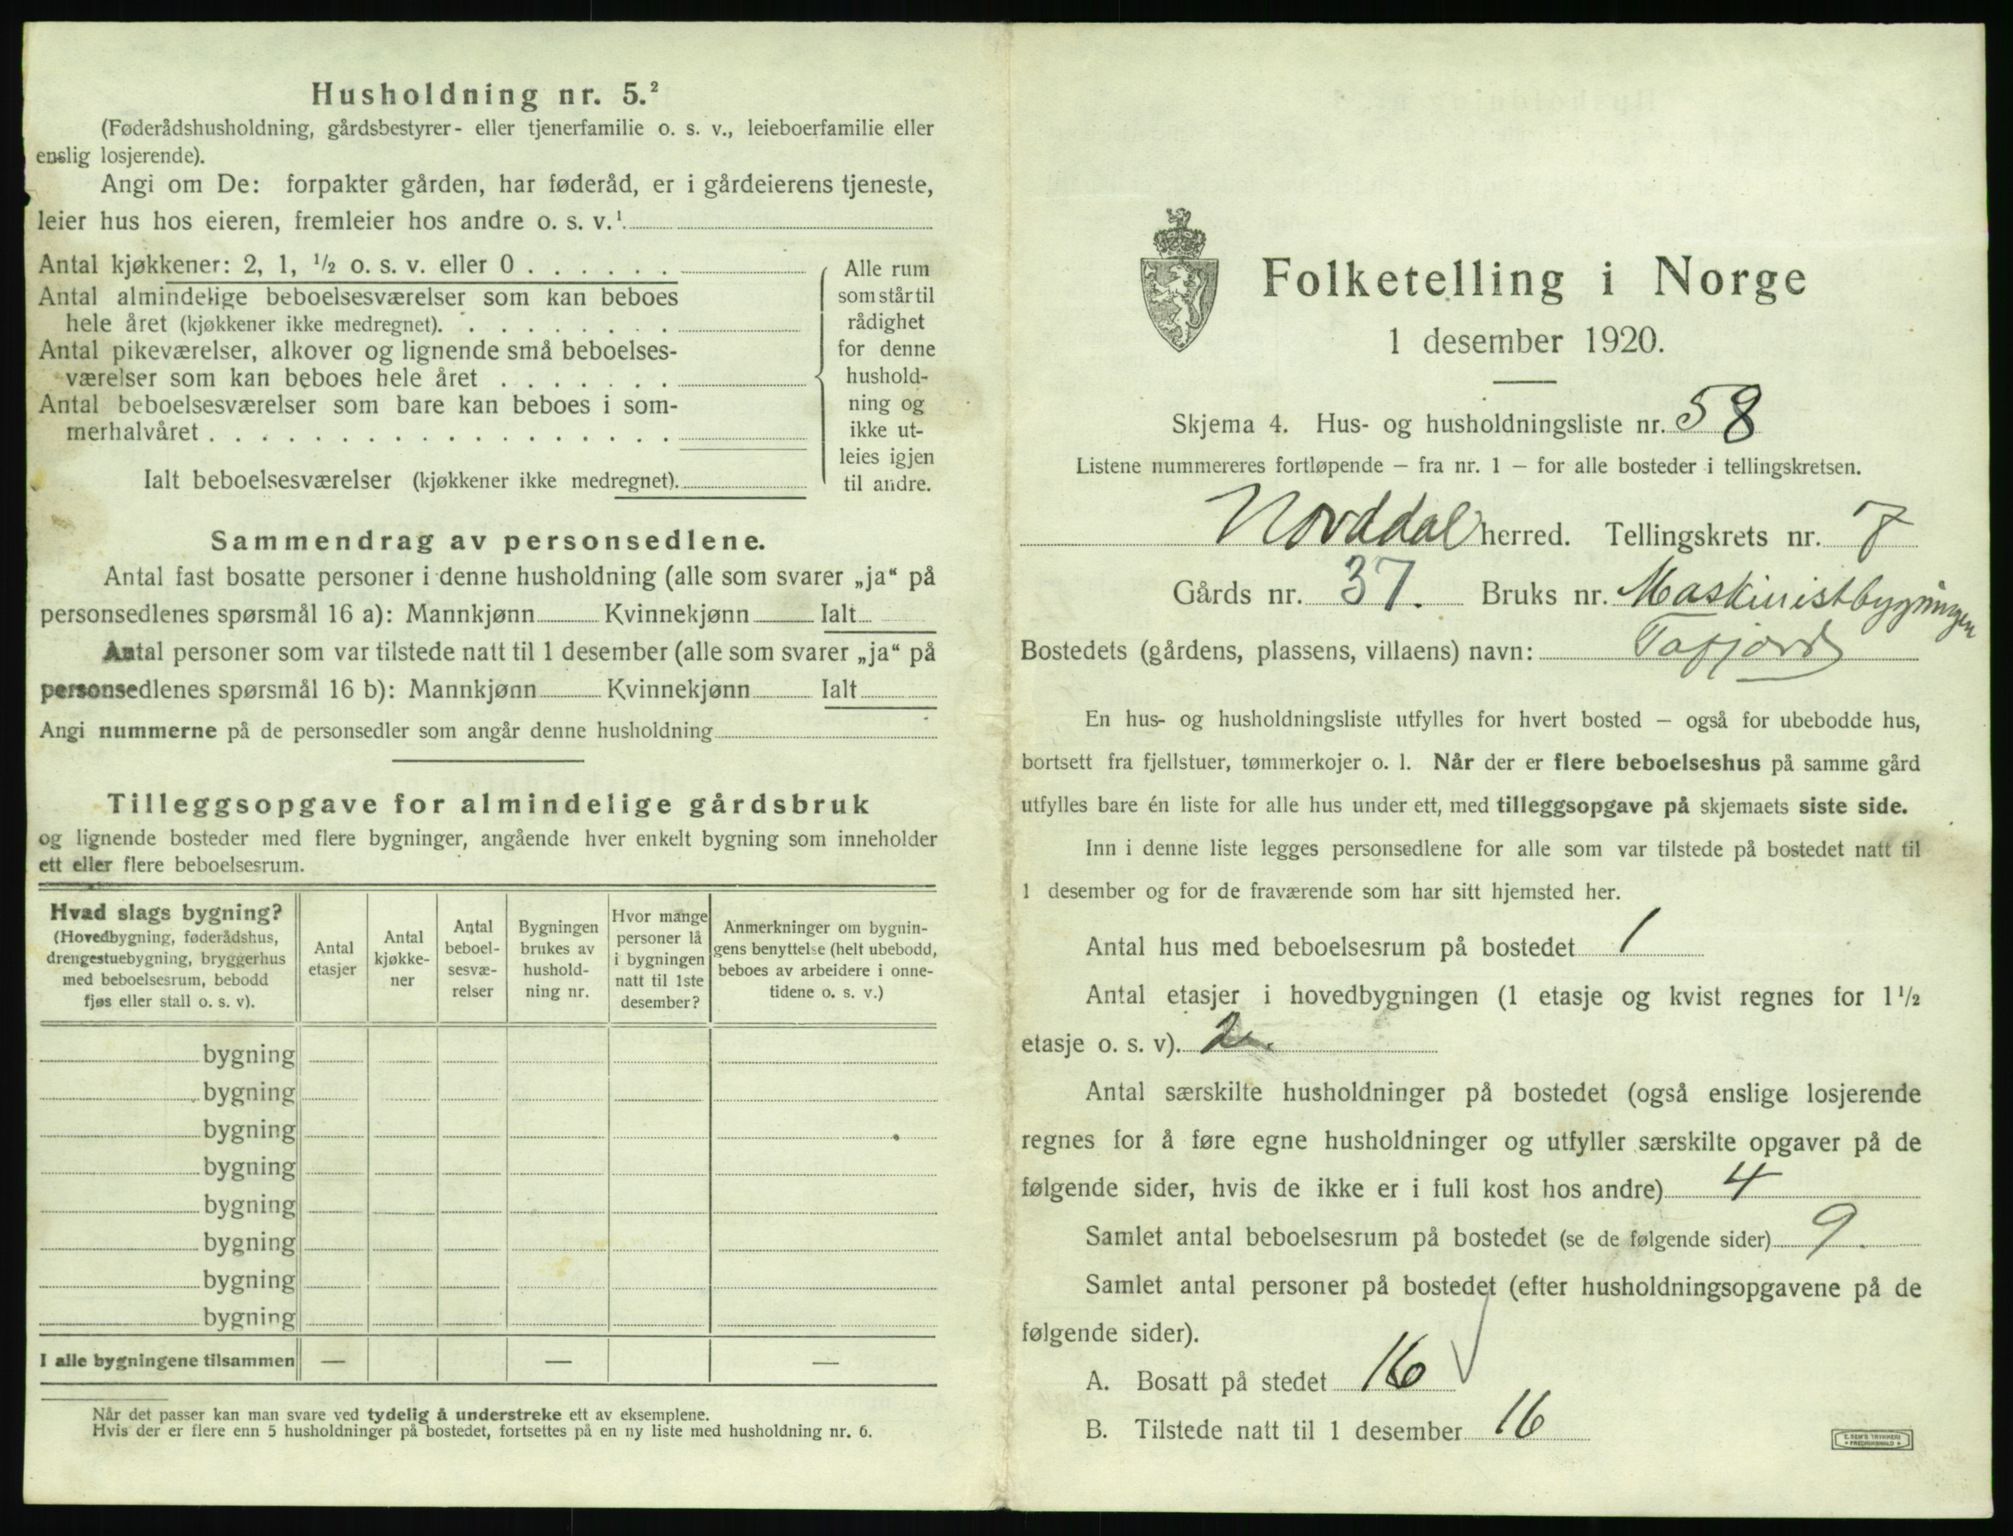 Husholdning nr. 5.²
(Føderådshusholdning, gårdsbestyrer- eller tjenerfamilie o. s. v., leieboerfamilie eller
enslig losjerende).
Angi om De: forpakter gården, har føderåd, er i gårdeierens tjeneste,
leier hus hos eieren, fremleier hos andre o. s. v.¹
Antal kjøkkener: 2, 1, ½ o. s. v. eller 0 . . . . . .
Antal almindelige beboelsesværelser som kan beboes
hele året (kjøkkener ikke medregnet). . . . . . . . .
Antal pikeværelser, alkover og lignende små beboelses-
værelser som kan beboes hele året . . . . . . .
Antal beboelsesværelser som bare kan beboes i som-
merhalvåret . . . . . . . . . . . . . . . . .
Alle rum
som står til
rådighet
for denne
hushold-
ning og
ikke ut-
leies igjen
til andre.
Ialt beboelsesværelser (kjøkkener ikke medregnet).
Sammendrag av personsedlene.
Antal fast bosatte personer i denne husholdning (alle som svarer „ja“ på
personsedlenes spørsmål 16 a): Mannkjønn Kvinnekjønn Ialt
Antal personer som var tilstede natt til 1 desember (alle som svarer „ja“ på
personsedlenes spørsmål 16 b): Mannkjønn Kvinnekjønn Ialt
Angi nummerne på de personsedler som angår denne husholdning
Tilleggsopgave for almindelige gårdsbruk
og lignende bosteder med flere bygninger, angående hver enkelt bygning som inneholder
ett eller flere beboelsesrum.
Hvad slags bygning?
(Hovedbygning, føderådshus,
drengestuebygning, bryggerhus
med beboelsesrum, bebodd
fjøs eller stall o. s. v).
Antal
etasjer
Antal
kjøkke-
ner
Antal
beboel-
sesvæ-
relser
Bygningen
brukes av
hushold-
ning nr.
Hvor mange
personer lå
i bygningen
natt til 1ste
desember?
Anmerkninger om bygnin-
gens benyttelse (helt ubebodd,
beboes av arbeidere i onne-
tidene o. s. v.)
bygning
bygning
bygning
bygning
bygning
bygning
bygning
bygning
I alle bygningene tilsammen — — —
Når det passer kan man svare ved tydelig å understreke ett av eksemplene.
Hvis der er flere enn 5 husholdninger på bostedet, fortsettes på en ny liste med husholdning nr. 6.
Folketelling i Norge
1 desember 1920.
Skjema 4. Hus- og husholdningsliste nr. 58
Listene nummereres fortløpende – fra nr. 1 – for alle bosteder i tellingskretsen.
Norddal herred. Tellingskrets nr. 7
Gårds nr. 37. Bruks nr. Maskinistbygningen
Bostedets (gårdens, plassens, villaens) navn: Tafjord
En hus- og husholdningsliste utfylles for hvert bosted – også for ubebodde hus,
bortsett fra fjellstuer, tømmerkojer o. l. Når der er flere beboelseshus på samme gård
utfylles bare én liste for alle hus under ett, med tilleggsopgave på skjemaets siste side.
Inn i denne liste legges personsedlene for alle som var tilstede på bostedet natt til
1 desember og for de fraværende som har sitt hjemsted her.
Antal hus med beboelsesrum på bostedet 1
Antal etasjer i hovedbygningen (1 etasje og kvist regnes for 1½
etasje o. s. v). 2.
Antal særskilte husholdninger på bostedet (også enslige losjerende
regnes for å føre egne husholdninger og utfyller særskilte opgaver på de
følgende sider, hvis de ikke er i full kost hos andre) 4
Samlet antal beboelsesrum på bostedet (se de følgende sider) 9.
Samlet antal personer på bostedet (efter husholdningsopgavene på de
følgende sider).
A. Bosatt på stedet 16
B. Tilstede natt til 1 desember 16